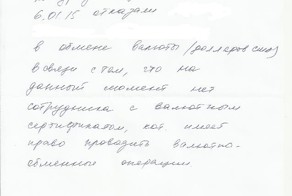 6.01.15 отказали
в обмене валюты (долларов сша)
в связи с тем, что на
данный момент нет
сотрудника с валютным
сертификатом, кот имеет
право проводить валютно-
обменные операции